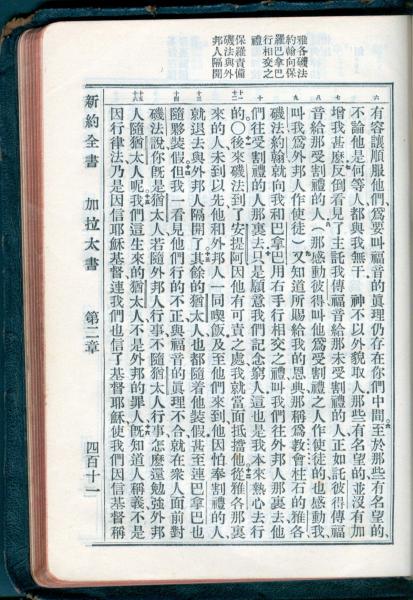 雅各磯法
約翰向保
羅巴拿巴
行相交之
禮
保羅責備
磯法與外
邦人隔開
六
有容讓順服他們、爲要叫福音的眞理仍存在你們中間至於那些有名望的、
不論他是何等人都與我無干　神不以外貌取人那些有名望的並沒有加
七
增我甚麽反倒看見了主託我傳福音給那未受割禮的人正如託彼得傳福
八
音給那受割禮的人（那感動彼得叫他爲受割禮之人作使徒的也感動我
九
叫我爲外邦人作使徒）又知道所賜給我的恩典那稱爲教會柱石的雅各
磯法約翰就向我和巴拿巴用右手行相交之禮叫我們往外邦人那裏去他
十
們往受割禮的人那裏去只是願意我們記念窮人這也是我本來熱心去行
十一
十二
的〇後來磯法到了安提阿因他有可責之處我就當面抵擋他從雅各那裏
來的人未到以先他和外邦人一同喫飯及至他們來到他因怕奉割禮的人
十三
就退去與外邦人隔開了其餘的猶太人也都隨着他裝假甚至連巴拿巴也
十四
隨夥裝假但我一看見他們行的不正與福音的眞理不合就在衆人面前對
磯法說你既是猶太人若隨外邦人行事不隨猶太人行事怎麽還勉強外邦
十五
十六
人隨猶太人呢我們這生來的猶太人不是外邦的罪人既知道人稱義不是
因行律法乃是因信耶穌基督連我們也信了基督耶穌、使我們因信基督稱
新約全書　加拉太書　第二章　四百十一